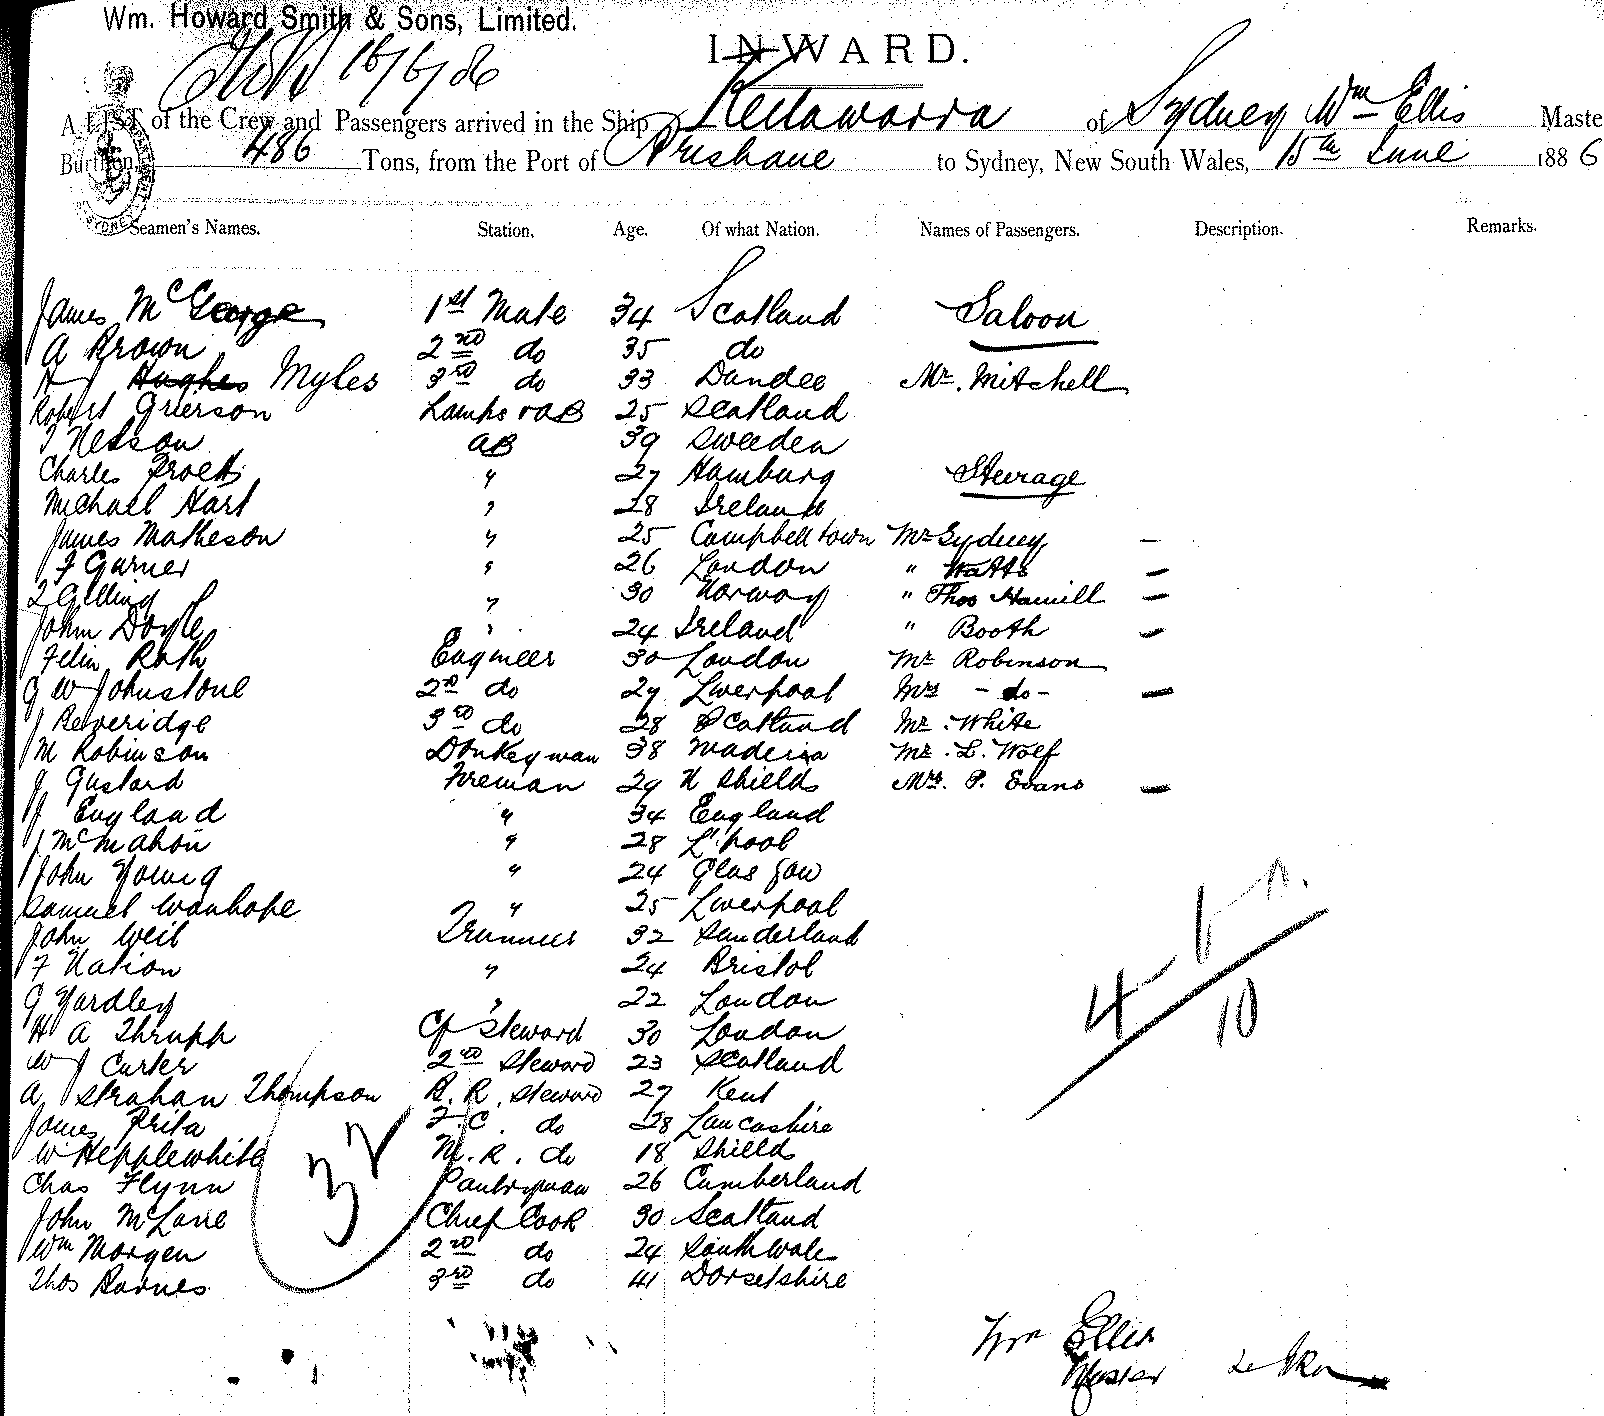 Wm. Howard Smith & Sons, Limited.
16/6/86
INWARD.
A LIST of the Crew and Passengers arrived in the Ship Keilawarra of Sydney Wm Ellis Maste
Burthen 486 Tons, from the Port of Brisbane to Sydney, New South Wales, 15th June 1886
Seamen's Names. Station. Age. Of what Nation. Names of Passengers. Description. Remarks.
James McGeorge 1st Mate 34 Scotland Saloon
A Brown 2nd do 35 do
H J Hughes Myles 3rd do 33 Dundee Mr. Mitchell
Robert Grierson Lamps & AB 25 Scotland
Nelson AB 39 Sweeden
Charles " 27 Hamburg Steerage
Michael Hart " 28 Ireland
James Matheson " 25 Campbelltown Mr Sydney —
F Garner " 26 London " Watts —
Gilling " 30 Norway " Thos Hamill —
John Doyle " 24 Ireland " Booth —
Felix Rath Engineer 30 London Mr Robinson
G W Johnstone 2nd do 29 Liverpool Mrs - do - —
J Beveridge 3rd do 28 Scotland Mr. White
M Robinson Donkeyman 38 Madeira Mr. L. Wolf
J Gustard Fireman 29 N Shields Mrs. P. Evans —
J England " 34 England
J McMahon " 28 L'pool
John Young " 24 Glasgow
Samuel Wanhope " 25 Liverpool
John Weil Trimmer 32 Sunderland
F Nation " 24 Bristol
G Yardley " 22 London
H A Thrupp Cf Steward 30 London
W J Carter 2nd Steward 23 Scotland
A Strahan Thompson B. R. Steward 27 Kent
James F. C. do 28 Lancashire
W Hepplewhite M. R. do 18 Shields
Chas Flynn Pantryman 26 Cumberland
John McLane Chief Cook 30 Scotland
Wm Morgen 2nd do 24 South Wales
Thos Barnes 3rd do 41 Dorsetshire
32
4
10
Wm Ellis
Master